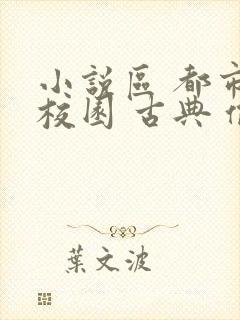 小說區 都市
校園 古典
葉文波